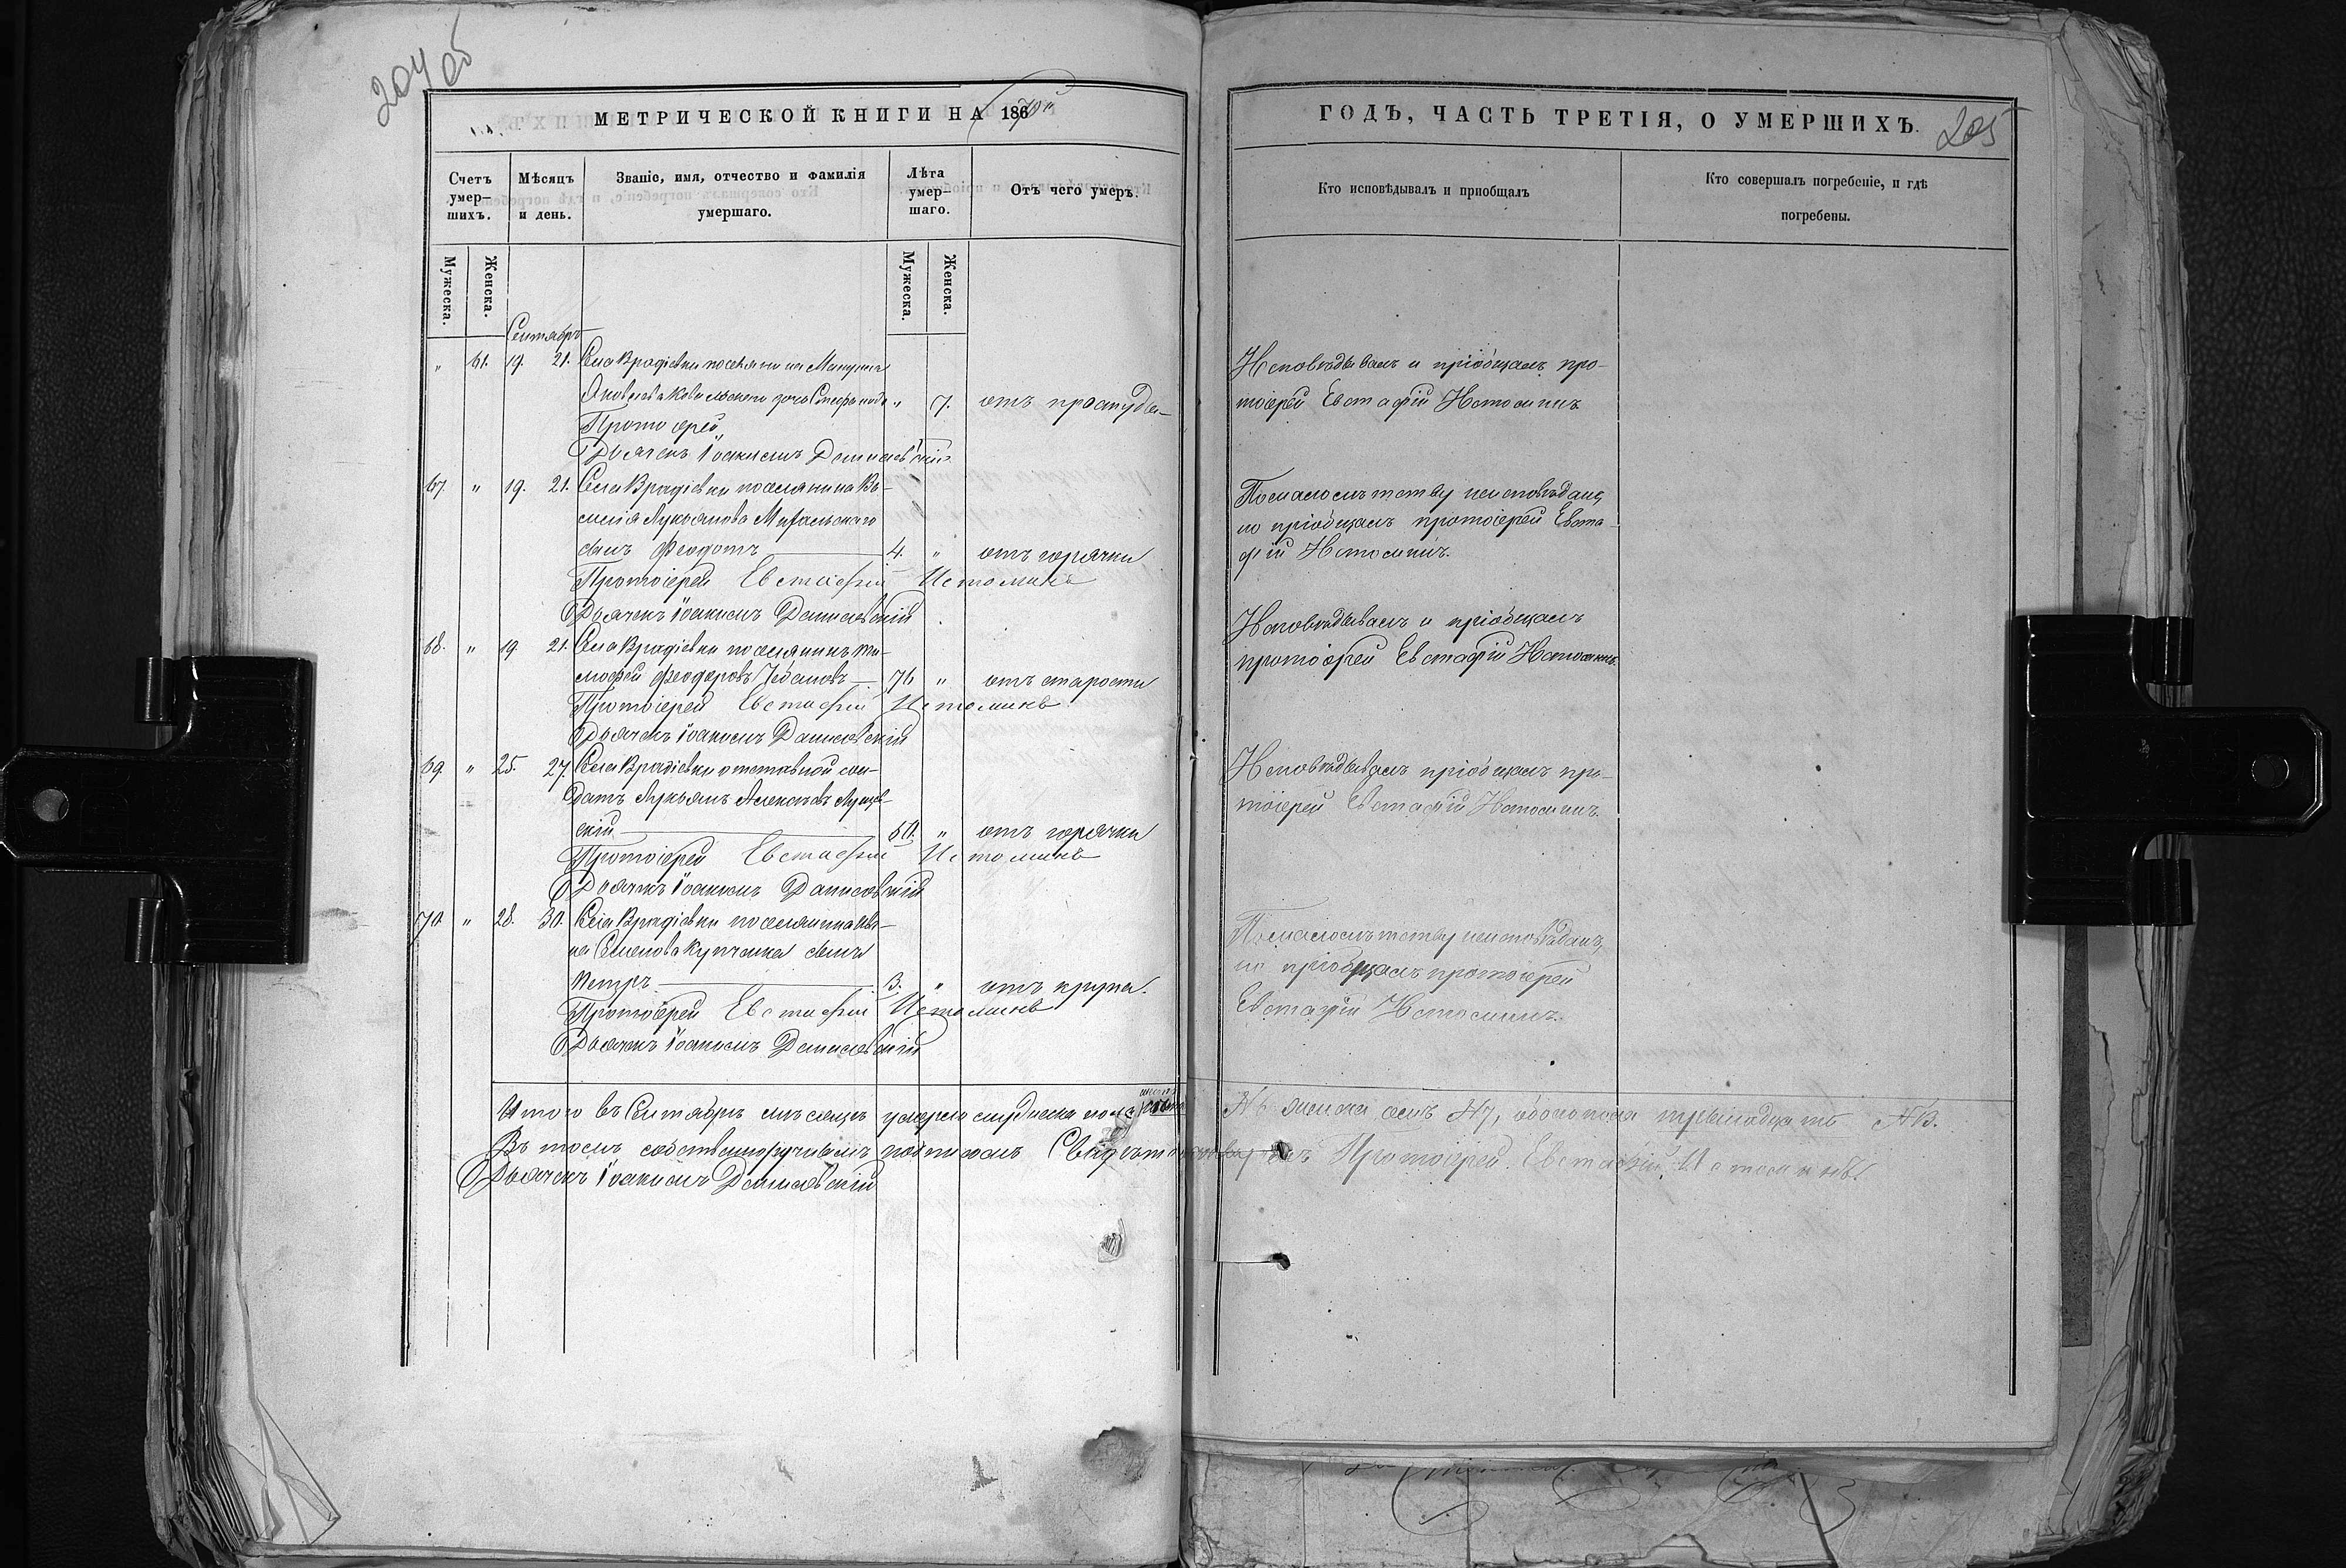 204 об
МЕТРИЧЕСКОЙ КНИГИ НА 186
Счетъ умер–шихъ.
Мѣсяцъ и день.
Званіе, имя, отчество и фамилія умершаго.
Лѣта умер–шаго.
Отъ чего умеръ.
Мужеска.
Женска.
Мужеска.
Женска.
Сентябрь
" 61. 19. 21. Села Врадіевки поселянина
Яковлева дочь " 7. отъ простуды
Протоіерей
Дьячекъ Іоакимъ Данилевскій
67. " 19. 21. Села Врадіевки поселянина Ва–
силія Лукьянова
сынъ Феодотъ 4. " отъ горячки
Протоіерей Евстафій Истоминъ
Дьячекъ Іоакимъ Данилевскій
68. " 19. 21. Села Врадіевки поселянинъ Ти–
мофей Феодоровъ 76 " отъ старости
Протоіерей Евстафій Истоминъ
Дьячекъ Іоакимъ Данилевскій
69. " 25. 27. Села Врадіевки отставной сол–
датъ Лукьянъ Алексѣевъ
скій " отъ горячки
Протоіерей Евстафій Истоминъ
Дьячекъ Іоакимъ Данилевскій
70. " 28. 30. Села Врадіевки поселянина Ива–
на Семенова Купченка сынъ
Петръ 3. " отъ крупа.
Протоіерей Евстафій Истоминъ
Дьячекъ Іоакимъ Данилевскій
Итого въ Сентябрѣ мѣсяцѣ умерло мужеска пола
Въ томъ собственноручнымъ подписомъ
Дьячекъ Іоакимъ Данилевскій
ГОДЪ, ЧАСТЬ ТРЕТІЯ, О УМЕРШИХЪ.
205
Кто исповѣдывалъ и приобщалъ
Кто совершалъ погребеніе, и гдѣ погребены.
Исповѣдывалъ и пріобщалъ про–
тоіерей Евстафій Истоминъ.
По малолѣтству неисповѣданъ,
но пріобщалъ протоіерей Евста–
фій Истоминъ.
Исповѣдывалъ и пріобщалъ
протоіерей Евстафій Истоминъ.
Исповѣдывалъ пріобщалъ про–
тоіерей Евстафій Истоминъ.
По малолѣтству неисповѣданъ,
но пріобщалъ протоіерей
Евстафій Истоминъ.
женска семь № 7, обоего пола тринадцать № 13.
Протоіерей Евстафій Истоминъ